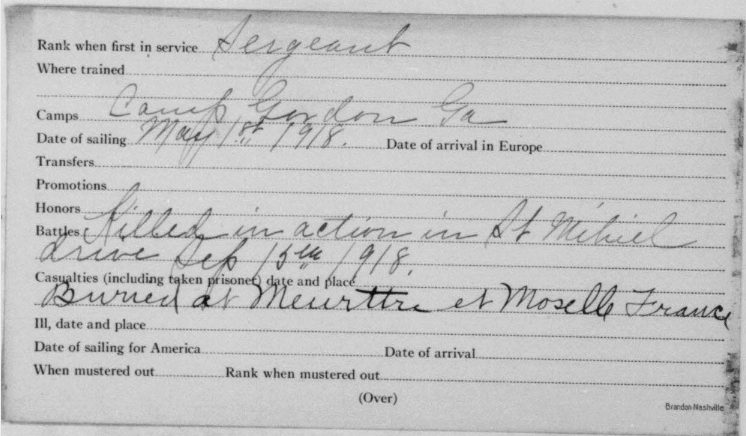 Rank when first in service Sergeant
Where trained
Camps Camp Gordon Ga
Date of sailing May 1st 1918. Date of arrival in Europe
Transfers
Promotions
Honors
Battles Killed in action in St Mihiel
drive Sep 15th 1918.
Casualties (including taken prisoner) date and place
Buried at Meurttre et Moselle France
Ill, date and place
Date of sailing for America Date of arrival
When mustered out Rank when mustered out
(Over)
Brandon-Nashville